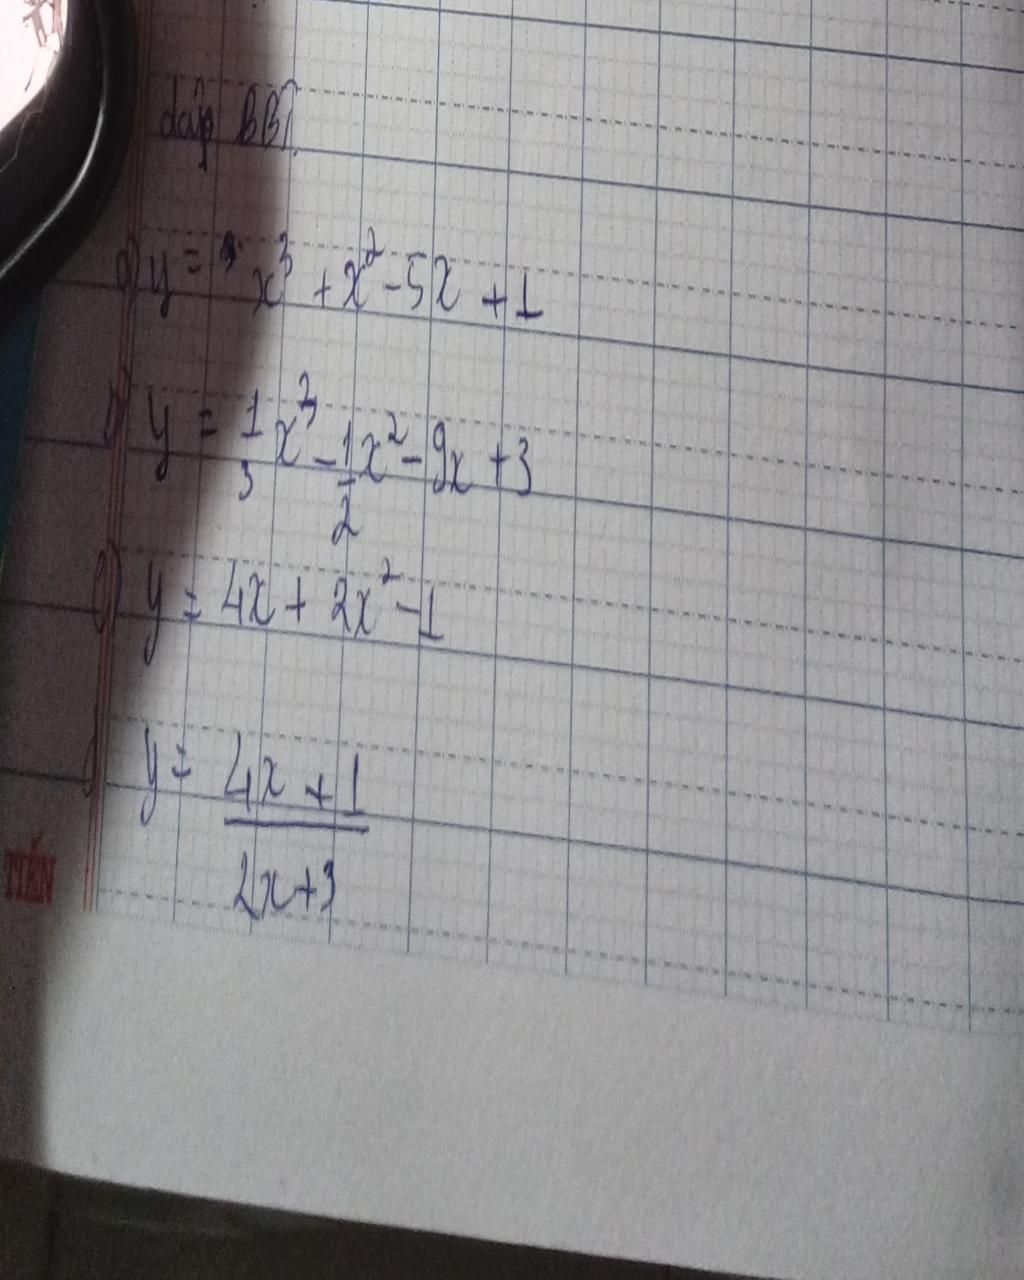 lập BBT
a) y = x³ + x² - 5x + 1
b) y = 1/3 x³ - 1/2 x² - 9x + 3
c) y = 4x + 2x² - 1
y = (4x + 1)/(2x + 3)